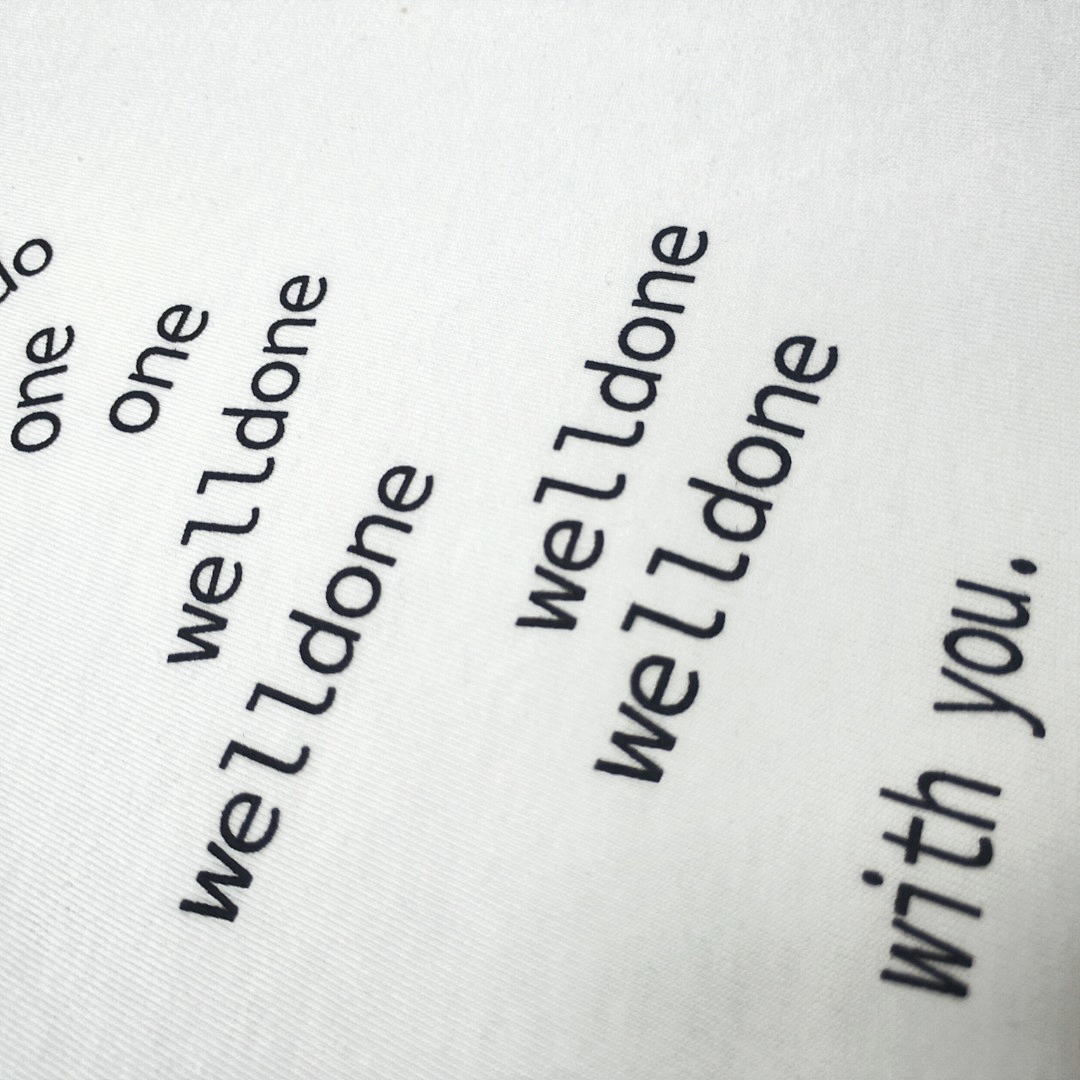 do
one
one
welldone
welldone
welldone
welldone
with you.